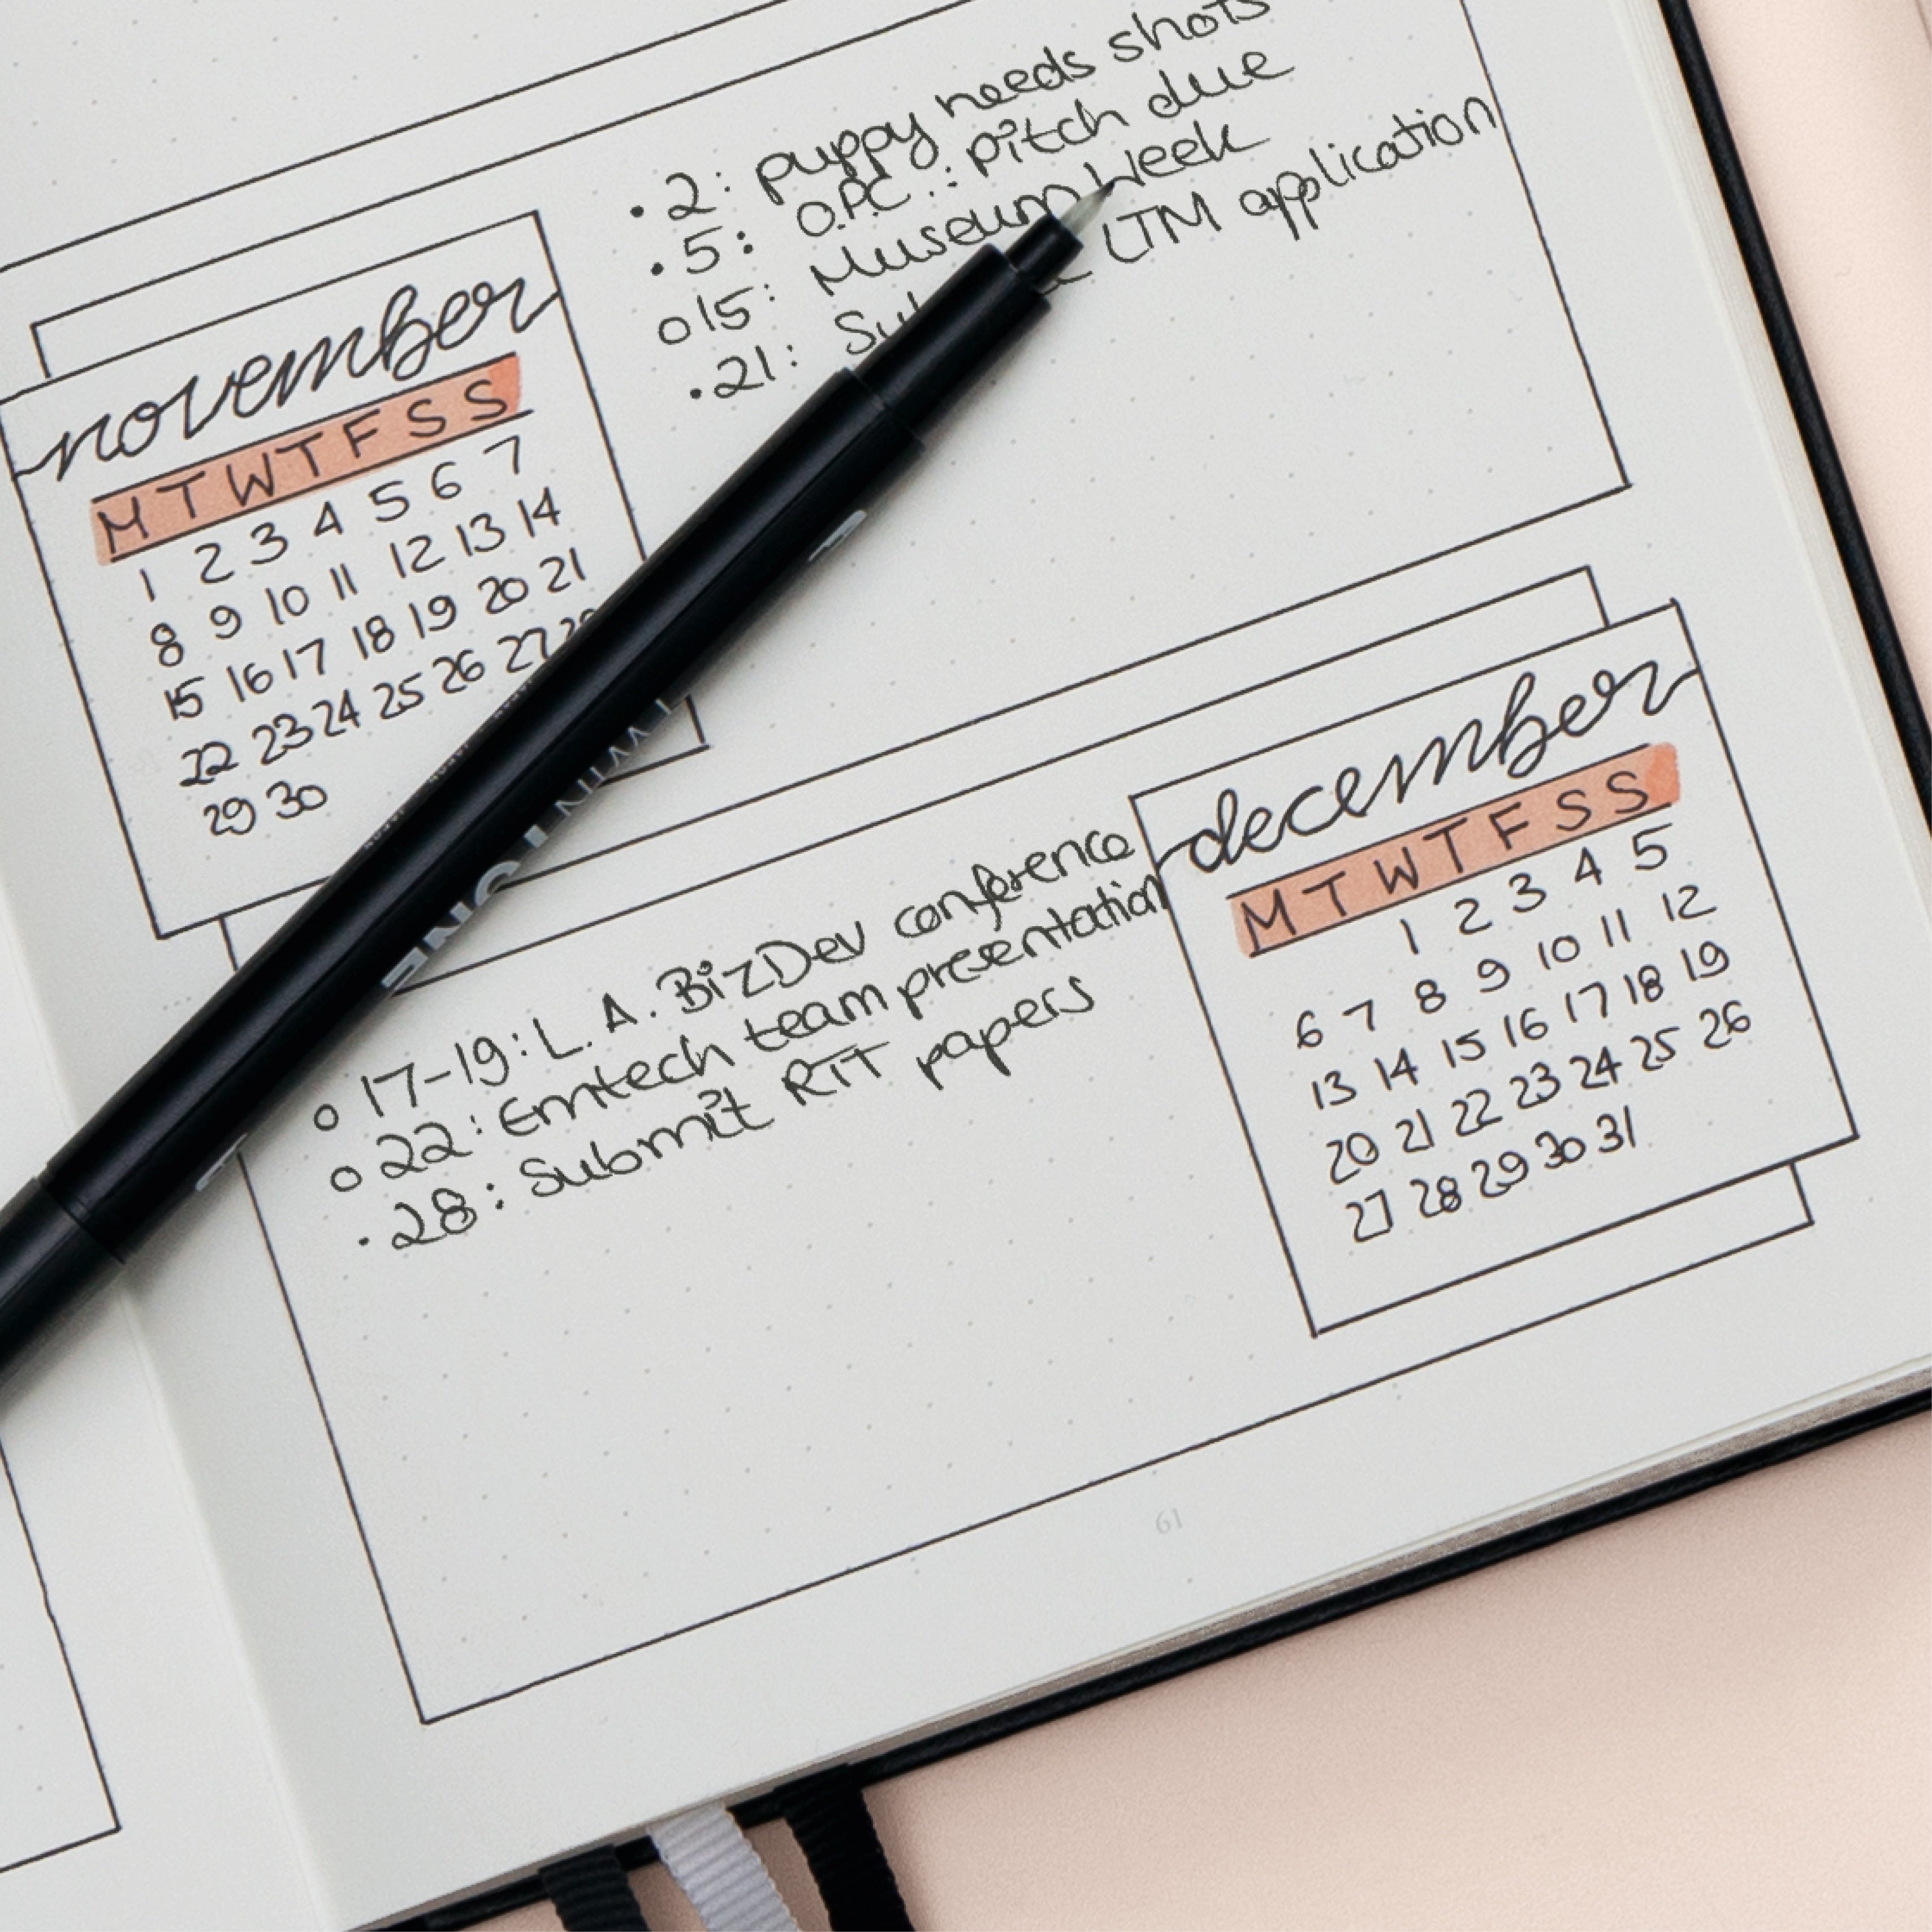 • 2: puppy needs shots
• 5: O.P.C.: pitch due
o 15: Museum Week
• 21: LTM application
november
M T W T F S S
1 2 3 4 5 6 7
8 9 10 11 12 13 14
15 16 17 18 19 20 21
22 23 24 25 26 27
29 30
o 17-19: L.A. BizDev conference
o 22: Emtech team presentation
• 28: Submit RTT papers
december
M T W T F S S
1 2 3 4 5
6 7 8 9 10 11 12
13 14 15 16 17 18 19
20 21 22 23 24 25 26
27 28 29 30 31
61